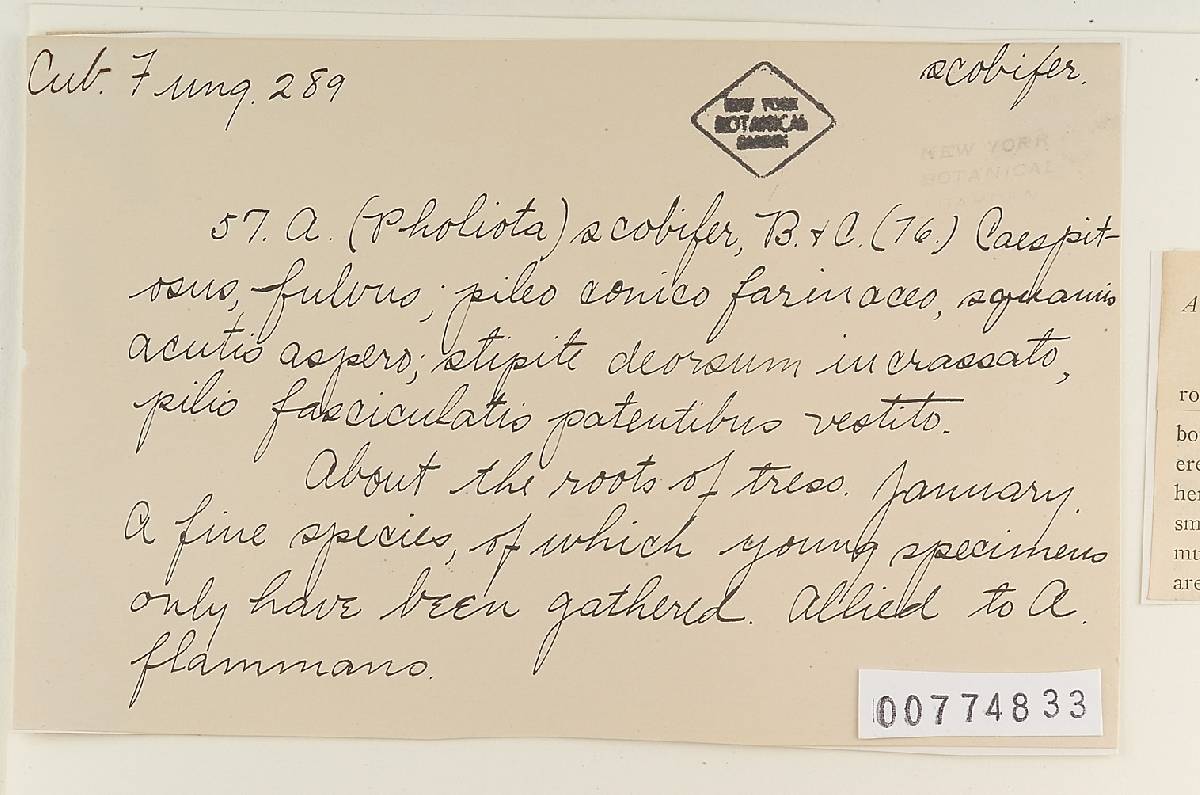 Cub. Fung. 289
scobifer.
NEW YORK
BOTANICAL
GARDEN
NEW YORK
BOTANICAL
57. A. (Pholiota) scobifer, B. & C. (76.) Caespit-
osus, fulvus; pileo conico farinaceo, squamis
acutis aspero; stipite deorsum incrassato,
pilis fasciculatis patentibus vestito.
About the roots of tress. January.
A fine species, of which young specimens
only have been gathered. Allied to A.
flammans.
00774833
A
ro
bo
ere
her
sm
mu
are